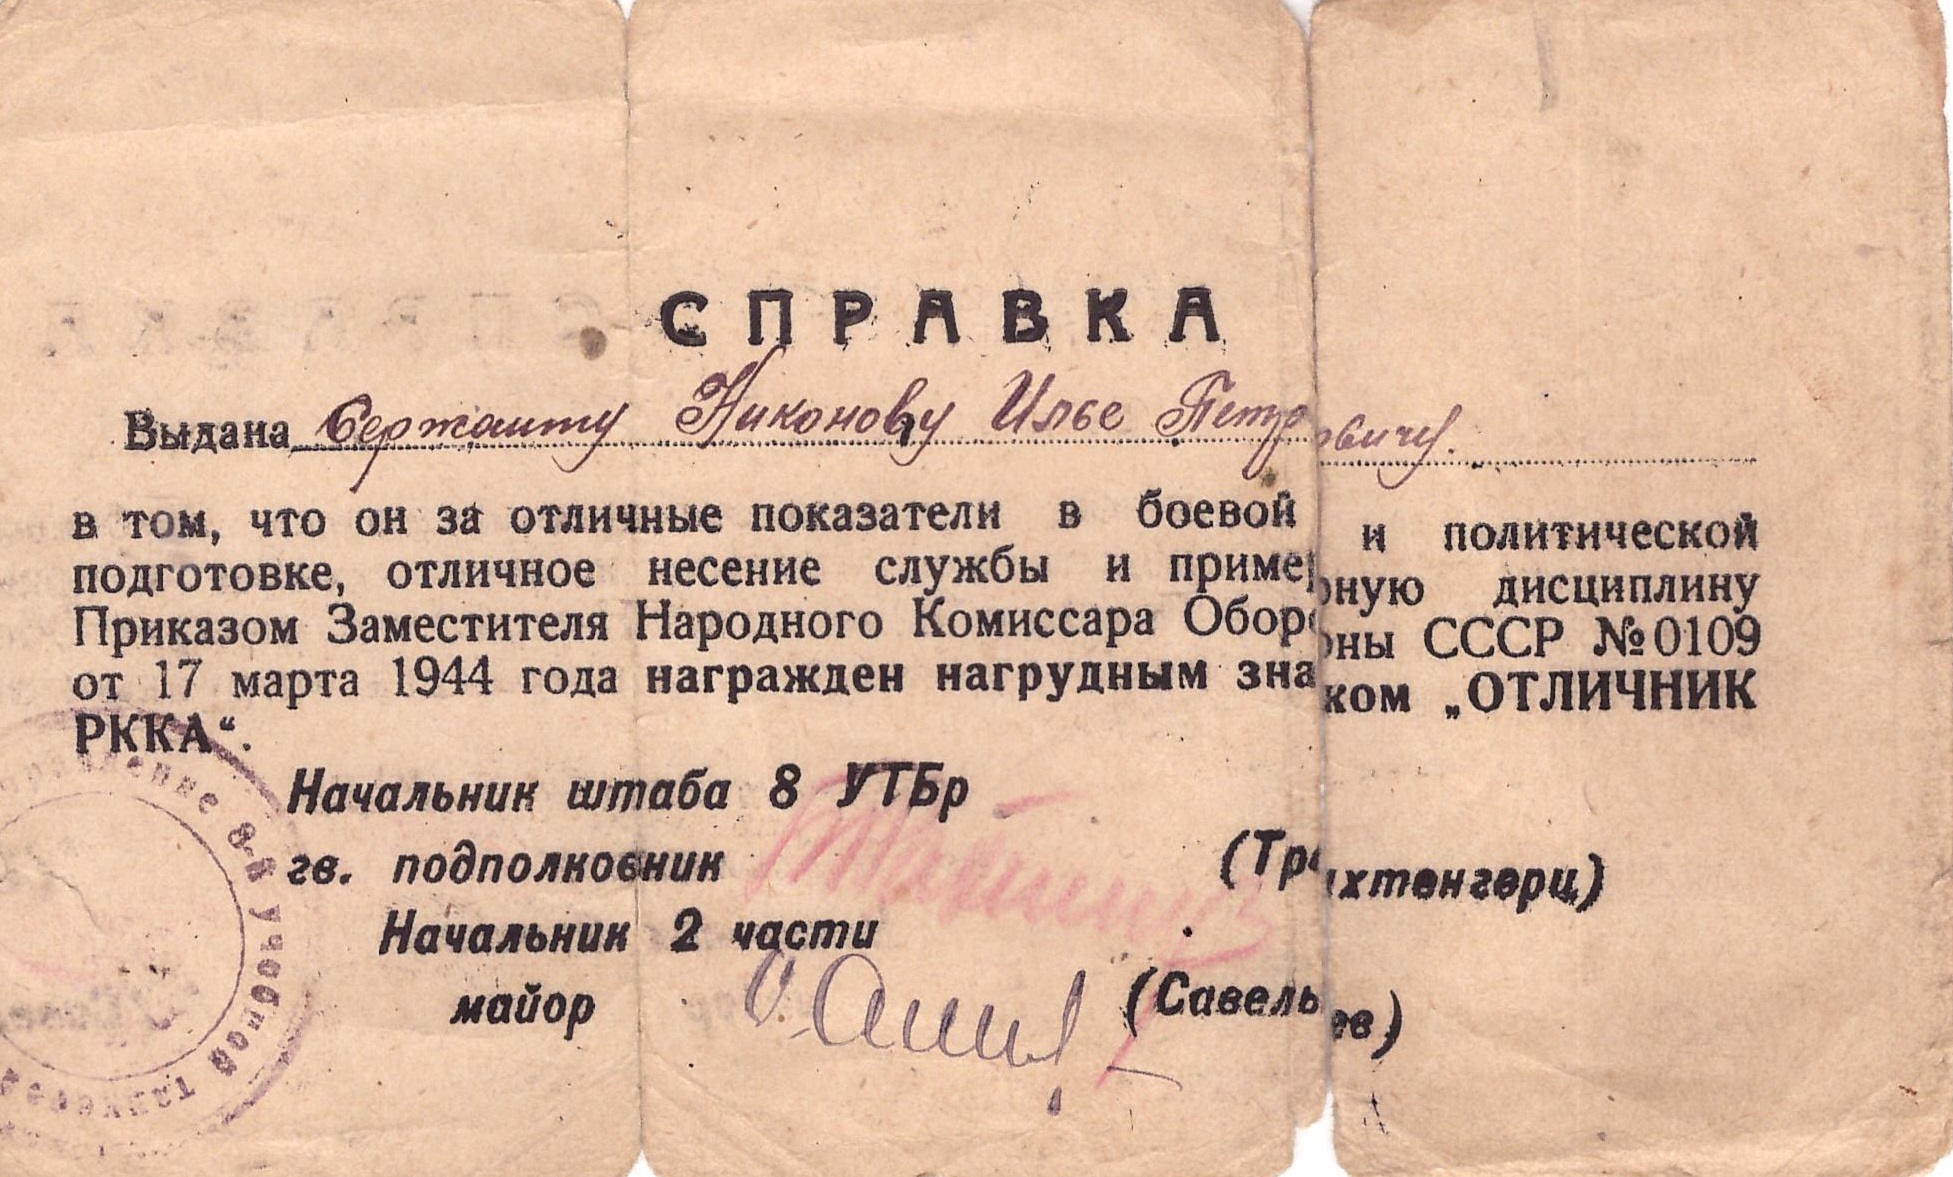 СПРАВКА
Выдана Сержанту Никонову Илье Петровичу.
в том, что он за отличные показатели в боевой и политической
подготовке, отличное несение службы и примерную дисциплину
Приказом Заместителя Народного Комиссара Обороны СССР №0109
от 17 марта 1944 года награжден нагрудным знаком „ОТЛИЧНИК
РККА“.
Начальник штаба 8 УТБр
гв. подполковник (Трахтенгерц)
Начальник 2 части
майор (Савельев)
8-й учебной танковой